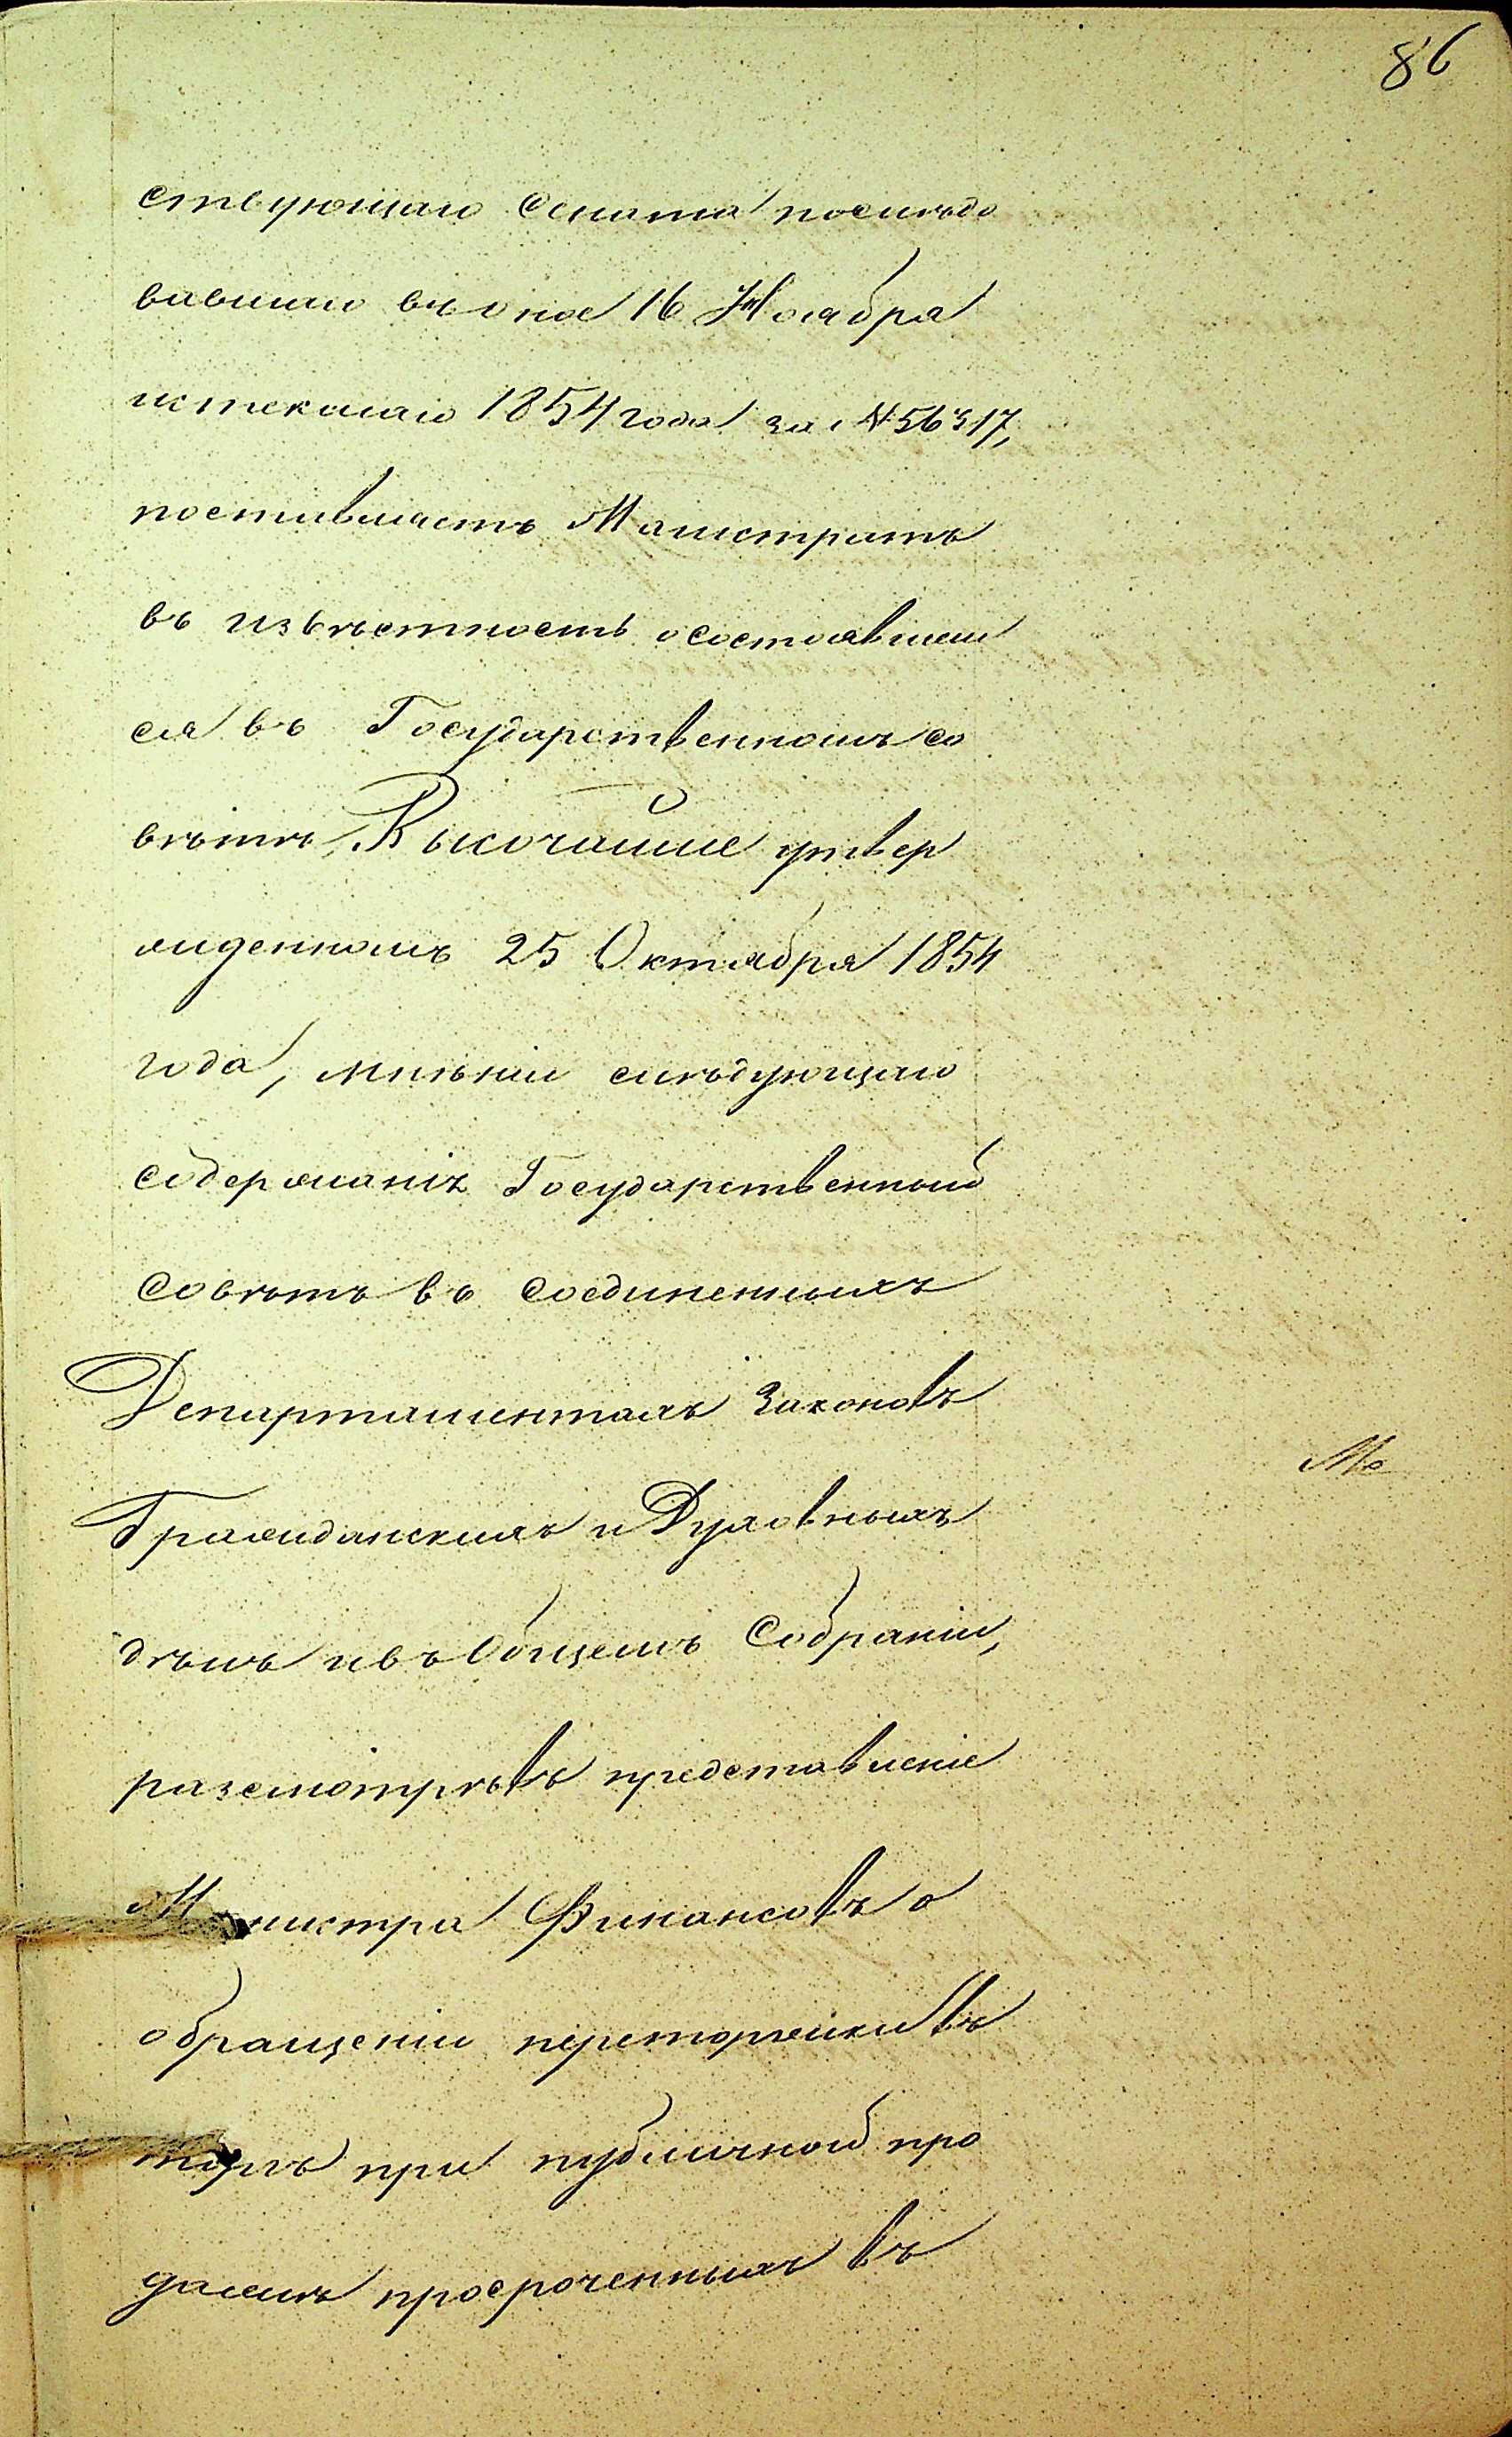 86
ствующаго Сената последо
вавшаго въ оное 16 Ноября
истекшаго 1854 года за №56317,
поставляетъ Магистратъ
въ извѣстность о состоявшем
ся въ Государственномъ со
вѣтѣ, Высочайше утвер
жденномъ 25 Октября 1854
года, мнѣніи слѣдующаго
содержанія Государственный
Совѣтъ въ Соединенныхъ
Департаментахъ Законовъ
Гражданскихъ и Духовныхъ
дѣлъ и въ Общемъ Собраніи,
разсмотрѣвъ представленіе
Министра Финансовъ о
обращеніи переторжки въ
торгъ при публичной про
дажѣ просроченныхъ въ